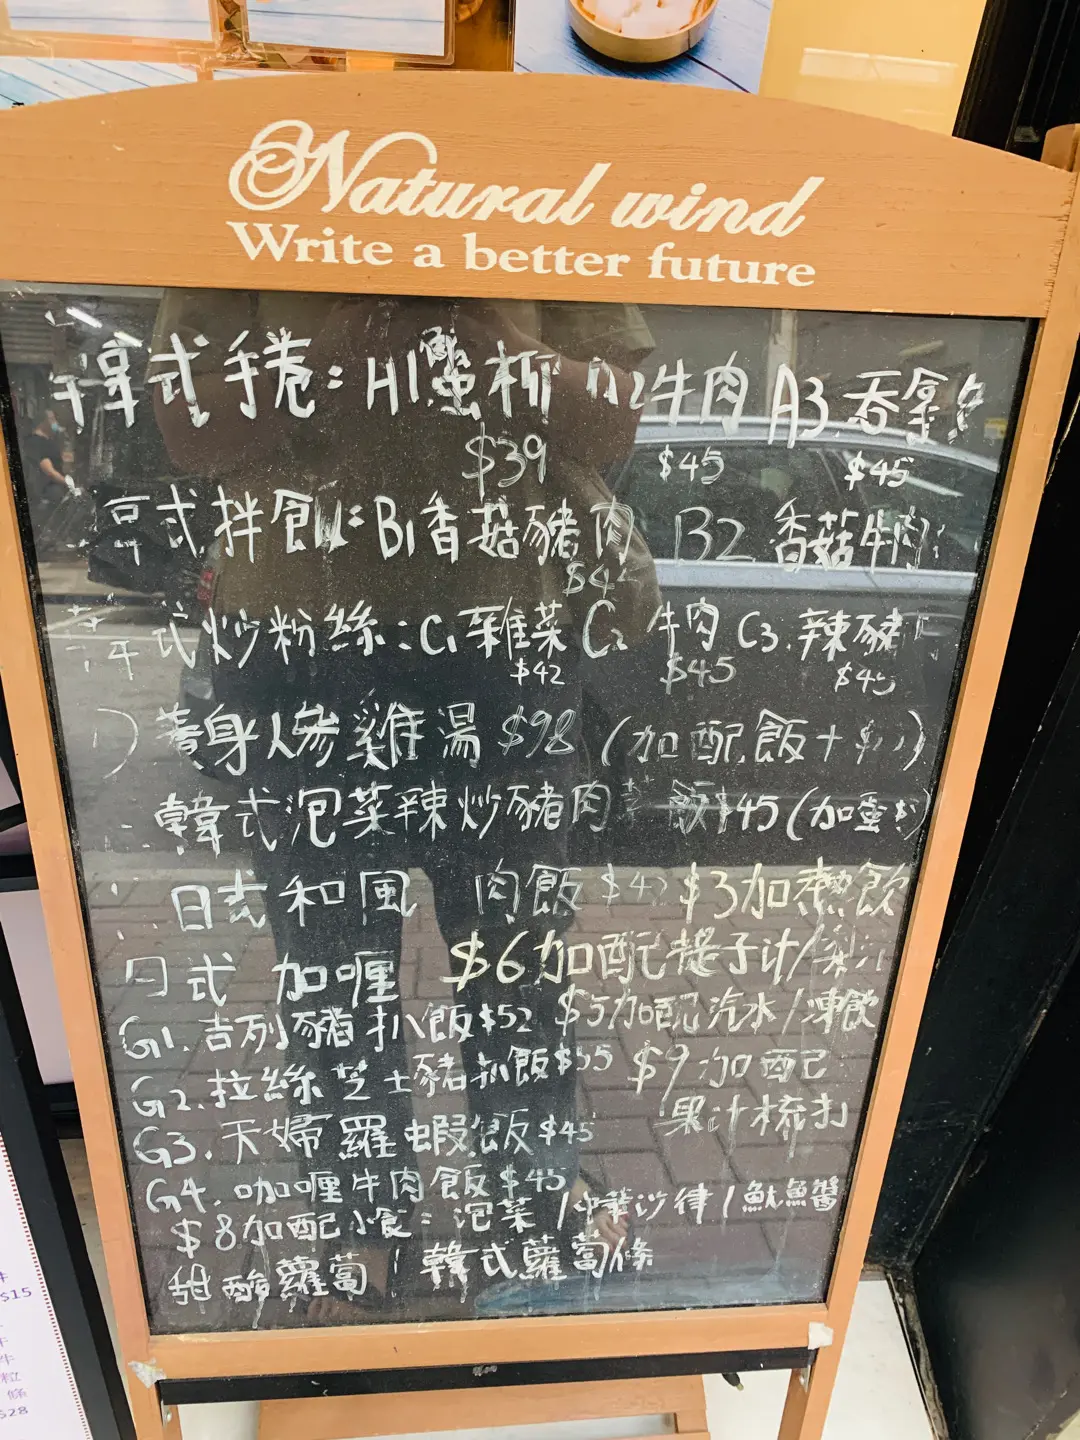 Natural wind
Write a better future
韓式手卷: A1蟹柳 A2牛肉 A3.吞拿
$39 $45 $45
式拌飯: B1香菇豬肉 B2 香菇牛肉
$4
式炒粉絲: C1雜菜 C2 牛肉 C3.辣豬
$42 $45 $45
身人參雞湯 $98 (加配飯+
韓式泡菜辣炒豬肉 飯$45 (加蛋
日式和風 肉飯 $4 $3加熱飲
日式 加喱 $6加配 子汁/
G1.吉列豬扒飯$52 $5加配汽水/凍飲
G2.拉絲芝士豬扒飯$55 $9加配
果汁梳打
G3.天婦羅蝦飯$45
G4.咖喱牛肉飯$45
$8加配小食: 泡菜/ 沙律/魷魚醬
甜酸蘿蔔/韓式蘿蔔條
$15
條
$28